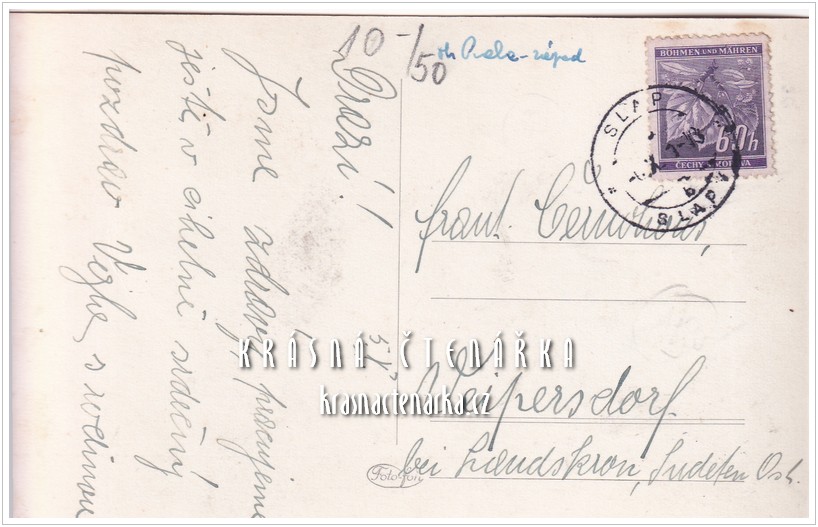 10-/50
okr. Praha-západ
BÖHMEN UND MÄHREN
60h
ČECHY A MORAVA
SLAPY
SLAPY
Drazí!
Jsme zdraví, pracujeme
ještě v cihelně srdečný
pozdrav Vejha s rodinou
5/X
Frant. Černohous,
Weipersdorf
bei Landskron, Sudeten Ost.
KRÁSNÁ ČTENÁŘKA
krasnactenarka.cz
Fotofon